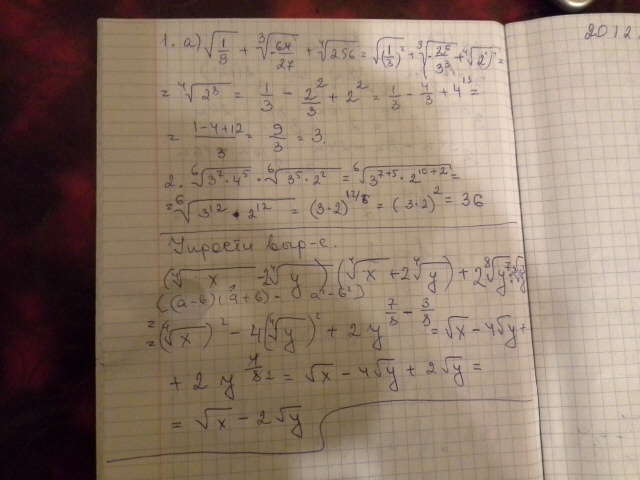 2012.
1. а) √(1/9) + ∛(-64/27) + ∜256 = √((1/3)²) + ∛(-2⁶/3³) +
= ∜(2⁸) = 1/3 - 2²/3 + 2² = 1/3 - 4/3 + 4 =
= (1-4+12)/3 = 9/3 = 3.
2. ⁶√(3⁷·4⁵) · ⁶√(3⁵·2²) = ⁶√(3⁷⁺⁵·2¹⁰⁺²) =
= ⁶√(3¹²·2¹²) = (3·2)^(12/6) = (3·2)² = 36
Упрости выр-е.
(∜x - 2∜y)(∜x + 2∜y) + 2⁸√y⁷
((a-b)(a+b) = a²-b²)
= (∜x)² - 4(∜y)² + 2y^(7/8 - 3/8) = √x - 4√y +
+ 2y^(4/8) = √x - 4√y + 2√y =
= √x - 2√y